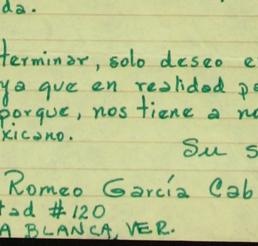 da.
terminar, solo deseo e
ya que en realidad pe
porque, nos tiene a no
xicano.
Su s
Romeo García Cab
tad #120
A BLANCA, VER.